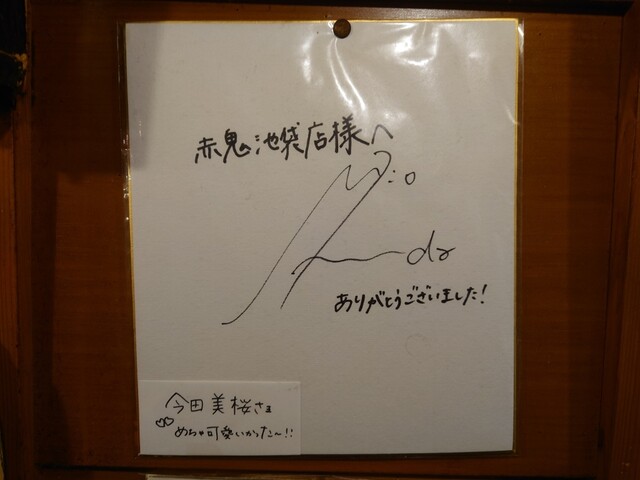 赤鬼池袋店様へ
ありがとうございました!
今田美桜さま
めちゃ可愛いかった〜!!